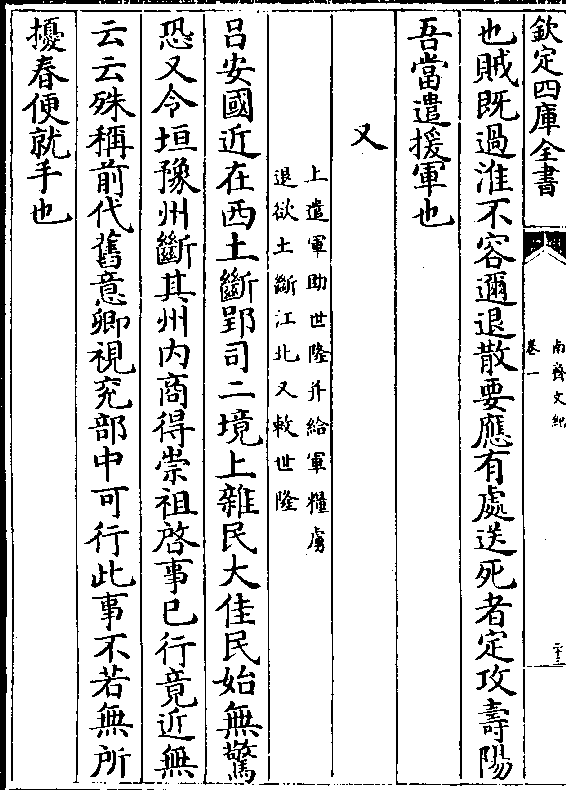 欽定四庫全書
南齊文紀
卷一
二十三
也賊既過淮不容邇退散要應有處送死者定攻壽陽
吾當遣援軍也
又
上遣軍助世隆并給軍糧虜
退欲土斷江北又敕世隆
吕安國近在西土斷郢司二境上雜民大佳民始無驚
恐又令垣豫州斷其州内商得崇祖啓事已行竟近無
云云殊稱前代舊意卿視兖部中可行此事不若無所
擾春便就手也